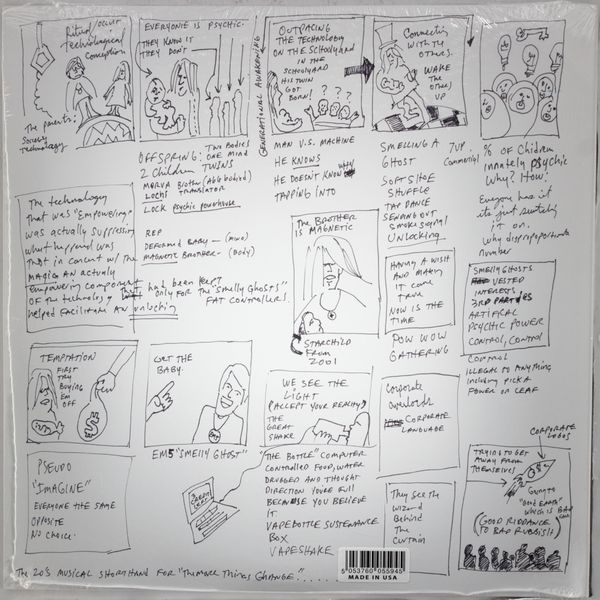 Ritual/occult
Technological
Conception
The parents:
Society
Technology
EVERYONE IS PSYCHIC.
THEY KNOW IT
THEY DON'T
GENERATIONAL AWAKENING
OUTPACING
THE TECHNOLOGY
ON THE SCHOOLYARD
IN THE
SCHOOLYARD
HIS TWIN
GOT
BORN!
? ? ?
Connecting
WITH THE
OTHERS.
WAKE
THE
OTHERS
UP
OFFSPRING: TWO BODIES
2 Children ONE MIND
TWINS
BROTHER
TRANSLATOR
LOCK PSYCHIC POWERHOUSE
REP
DEFORMED BABY - (MIND)
MAGNETIC BROTHER - (Body)
MAN V.S. MACHINE
HE KNOWS
HE DOESN'T KNOW
TAPPING INTO
SMELLING A
GHOST
7UP.
Commercial
SOFTSHOE
SHUFFLE
TAP DANCE
SENDING OUT
Smoke signal
UNLOCKING
% OF Children
innately PSYchic
Why? How?
Everyone has it
its just switching
it on.
why disproportionate
number
The technology
That was "Empowering"
was actually suppressing
what happened was
That in concert w/ The
MAGICIAN ACTUALLY
Empowering component
OF The technology that had been kept
only for the "Smelly Ghosts"
FAT CONTROLLERS.
helped facilitate an unlocking
The BROTHER
IS MAGNETIC
STARCHILD
FROM
2001
HAVING A WISH
AND MAKING
IT COME
TRUE
NOW IS THE
TIME
POW WOW
GATHERING
SMELLY GHOSTS
VESTED
INTERESTS
3RD PARTIES
ARTIFICAL
PSYCHIC POWER
CONTROL, CONTROL
CONTROL
ILLEGAL TO ANYTHING
Including PICK A
FLOWER OR LEAF
TEMPTATION
FIRST
TRY
BUYING
EM
OFF
GET THE
BABY.
EMS "SMELLY GHOST"
WE SEE THE
LIGHT
(ACCEPT YOUR REALITY)
THE
GREAT
SHAKE
Corporate
Overlords
CORPORATE
LANGUAGE
CORPORATE
LOGOS
TRYING TO GET
AWAY FROM
THEMSELVES
Going to
"Good Earth"
which is Bad
(GOOD RIDDANCE
TO BAD RUBBISH)
PSEUDO
"IMAGINE"
EVERYONE THE SAME
OPPOSITE
NO CHOICE.
"THE BOTTLE" COMPUTER
CONTROLLED FOOD, WATER
DRUGGED AND THOUGHT
DIRECTION YOU'RE FULL
BECAUSE YOU BELIEVE
IT
VAPE BOTTLE SUSTENANCE
BOX
VAPESHAKE
They see the
wizard
Behind
The
Curtain
The 20's MUSICAL SHORTHAND FOR "The More Things Change".....
5 053760 055945
MADE IN USA